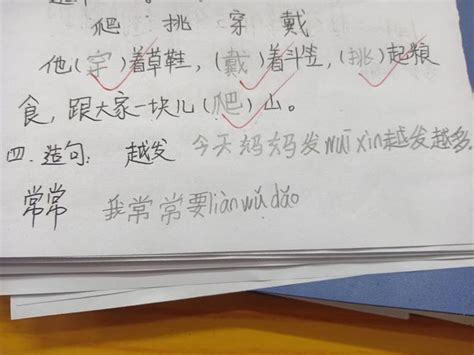 爬 挑 穿 戴
他(穿)着草鞋,(戴)着斗笠,(挑)起粮
食,跟大家一块儿(爬)山。
四.造句: 越发 今天妈妈发wēi xìn越发越多.
常常 我常常要liàn wǔ dǎo